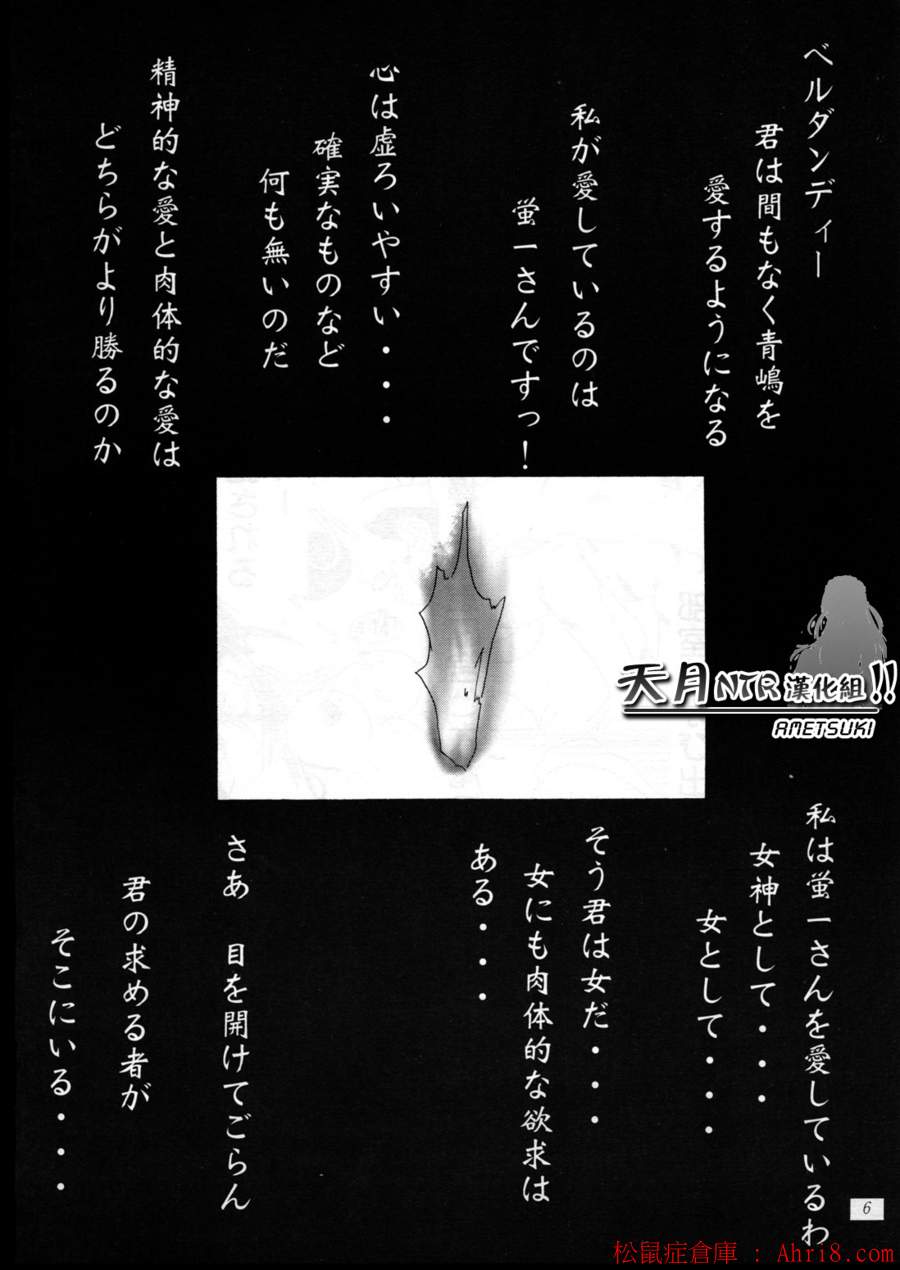 ベルダンディー
君は間もなく青嶋を
愛するようになる
私が愛しているのは
蛍一さんですっ！
心は虚ろいやすい・・・
確実なものなど
何も無いのだ
精神的な愛と肉体的な愛は
どちらがより勝るのか
天月NTR漢化組!!
AMETSUKI
私は蛍一さんを愛しているわ
女神として・・・
女として・・・
そう君は女だ・・・
女にも肉体的な欲求は
ある・・・
さあ　目を開けてごらん
君の求める者が
そこにいる・・・・
6
松鼠症倉庫 : Ahri8.com